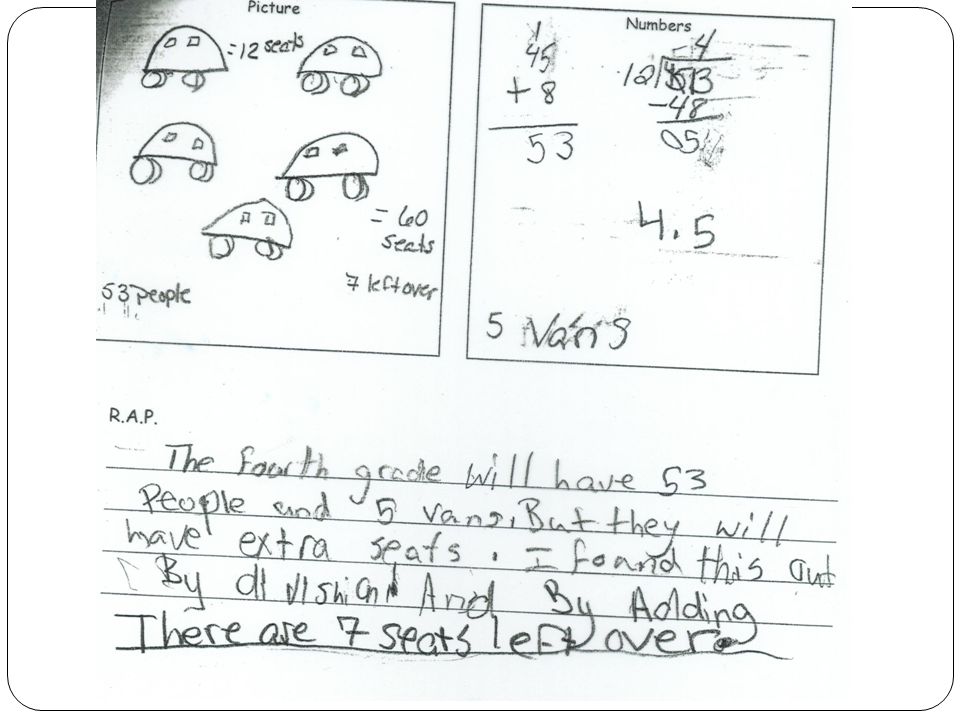 Picture
= 12 seats
= 60
seats
7 leftover
53 people
Numbers
1
45
+ 8
53
4
12 53
-48
05
4.5
5 Vans
R.A.P.
The fourth grade will have 53
People and 5 vans. But they will
have extra seats. I foand this out
By divishion And By Adding
There are 7 seats left over.